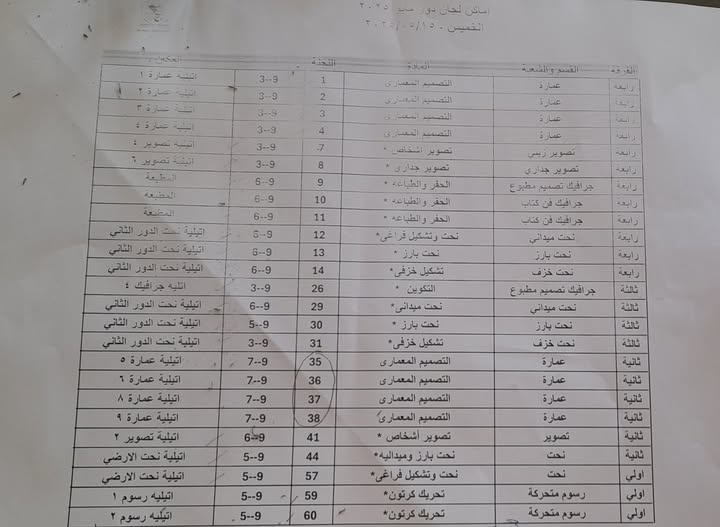 أماكن لجان دور مايو ٢٠٢٥
الخميس - ٢٠٢٥/٠٥/١٥
الفرقة القسم والشعبة المادة اللجنة المكان
رابعة عمارة التصميم المعمارى 1 9--3 اتيليه عمارة ١
رابعة عمارة التصميم المعمارى 2 9--3 اتيلية عمارة ٢
رابعة عمارة التصميم المعمارى 3 9--3 اتيلية عمارة ٣
رابعة عمارة التصميم المعمارى 4 9--3 اتيلية عمارة ٤
رابعة تصوير زيتي تصوير أشخاص * 7 9--3 اتيليه تصوير ٤
رابعة تصوير جداري تصوير جدارى * 8 9--3 اتيلية تصوير ٦
رابعة جرافيك تصميم مطبوع الحفر والطباعه * 9 9--6 المطبعة
رابعة جرافيك فن كتاب الحفر والطباعه * 10 9--6 المطبعه
رابعة جرافيك فن كتاب الحفر والطباعه * 11 9--6 المطبعة
رابعة نحت ميداني نحت وتشكيل فراغى* 12 9--6 اتيلية نحت الدور الثاني
رابعة نحت بارز نحت بارز * 13 9--6 اتيلية نحت الدور الثاني
رابعة نحت خزف تشكيل خزفى* 14 9--6 اتيلية نحت الدور الثاني
ثالثة جرافيك تصميم مطبوع التكوين * 26 9--3 اتليه جرافيك ٤
ثالثة نحت ميداني نحت ميدانى* 29 9--6 اتيلية نحت الدور الثاني
ثالثة نحت بارز نحت بارز * 30 9--5 اتيلية نحت الدور الثاني
ثالثة نحت خزف تشكيل خزفى* 31 9--3 اتيلية نحت الدور الثاني
ثانية عمارة التصميم المعمارى 35 9--7 اتيلية عمارة ٥
ثانية عمارة التصميم المعمارى 36 9--7 اتيلية عمارة ٦
ثانية عمارة التصميم المعمارى 37 9--7 اتيلية عمارة ٨
ثانية عمارة التصميم المعمارى 38 9--7 اتيلية عمارة ٩
ثانية تصوير تصوير أشخاص * 41 9--6 اتيلية تصوير ٢
ثانية نحت نحت بارز وميداليه* 44 9--5 اتيلية نحت الارضي
اولي نحت نحت وتشكيل فراغى* 57 9--5 اتيلية نحت الارضي
اولي رسوم متحركة تحريك كرتون* 59 9--5 اتيليه رسوم ١
اولي رسوم متحركة تحريك كرتون* 60 9--5 اتيليه رسوم ٢